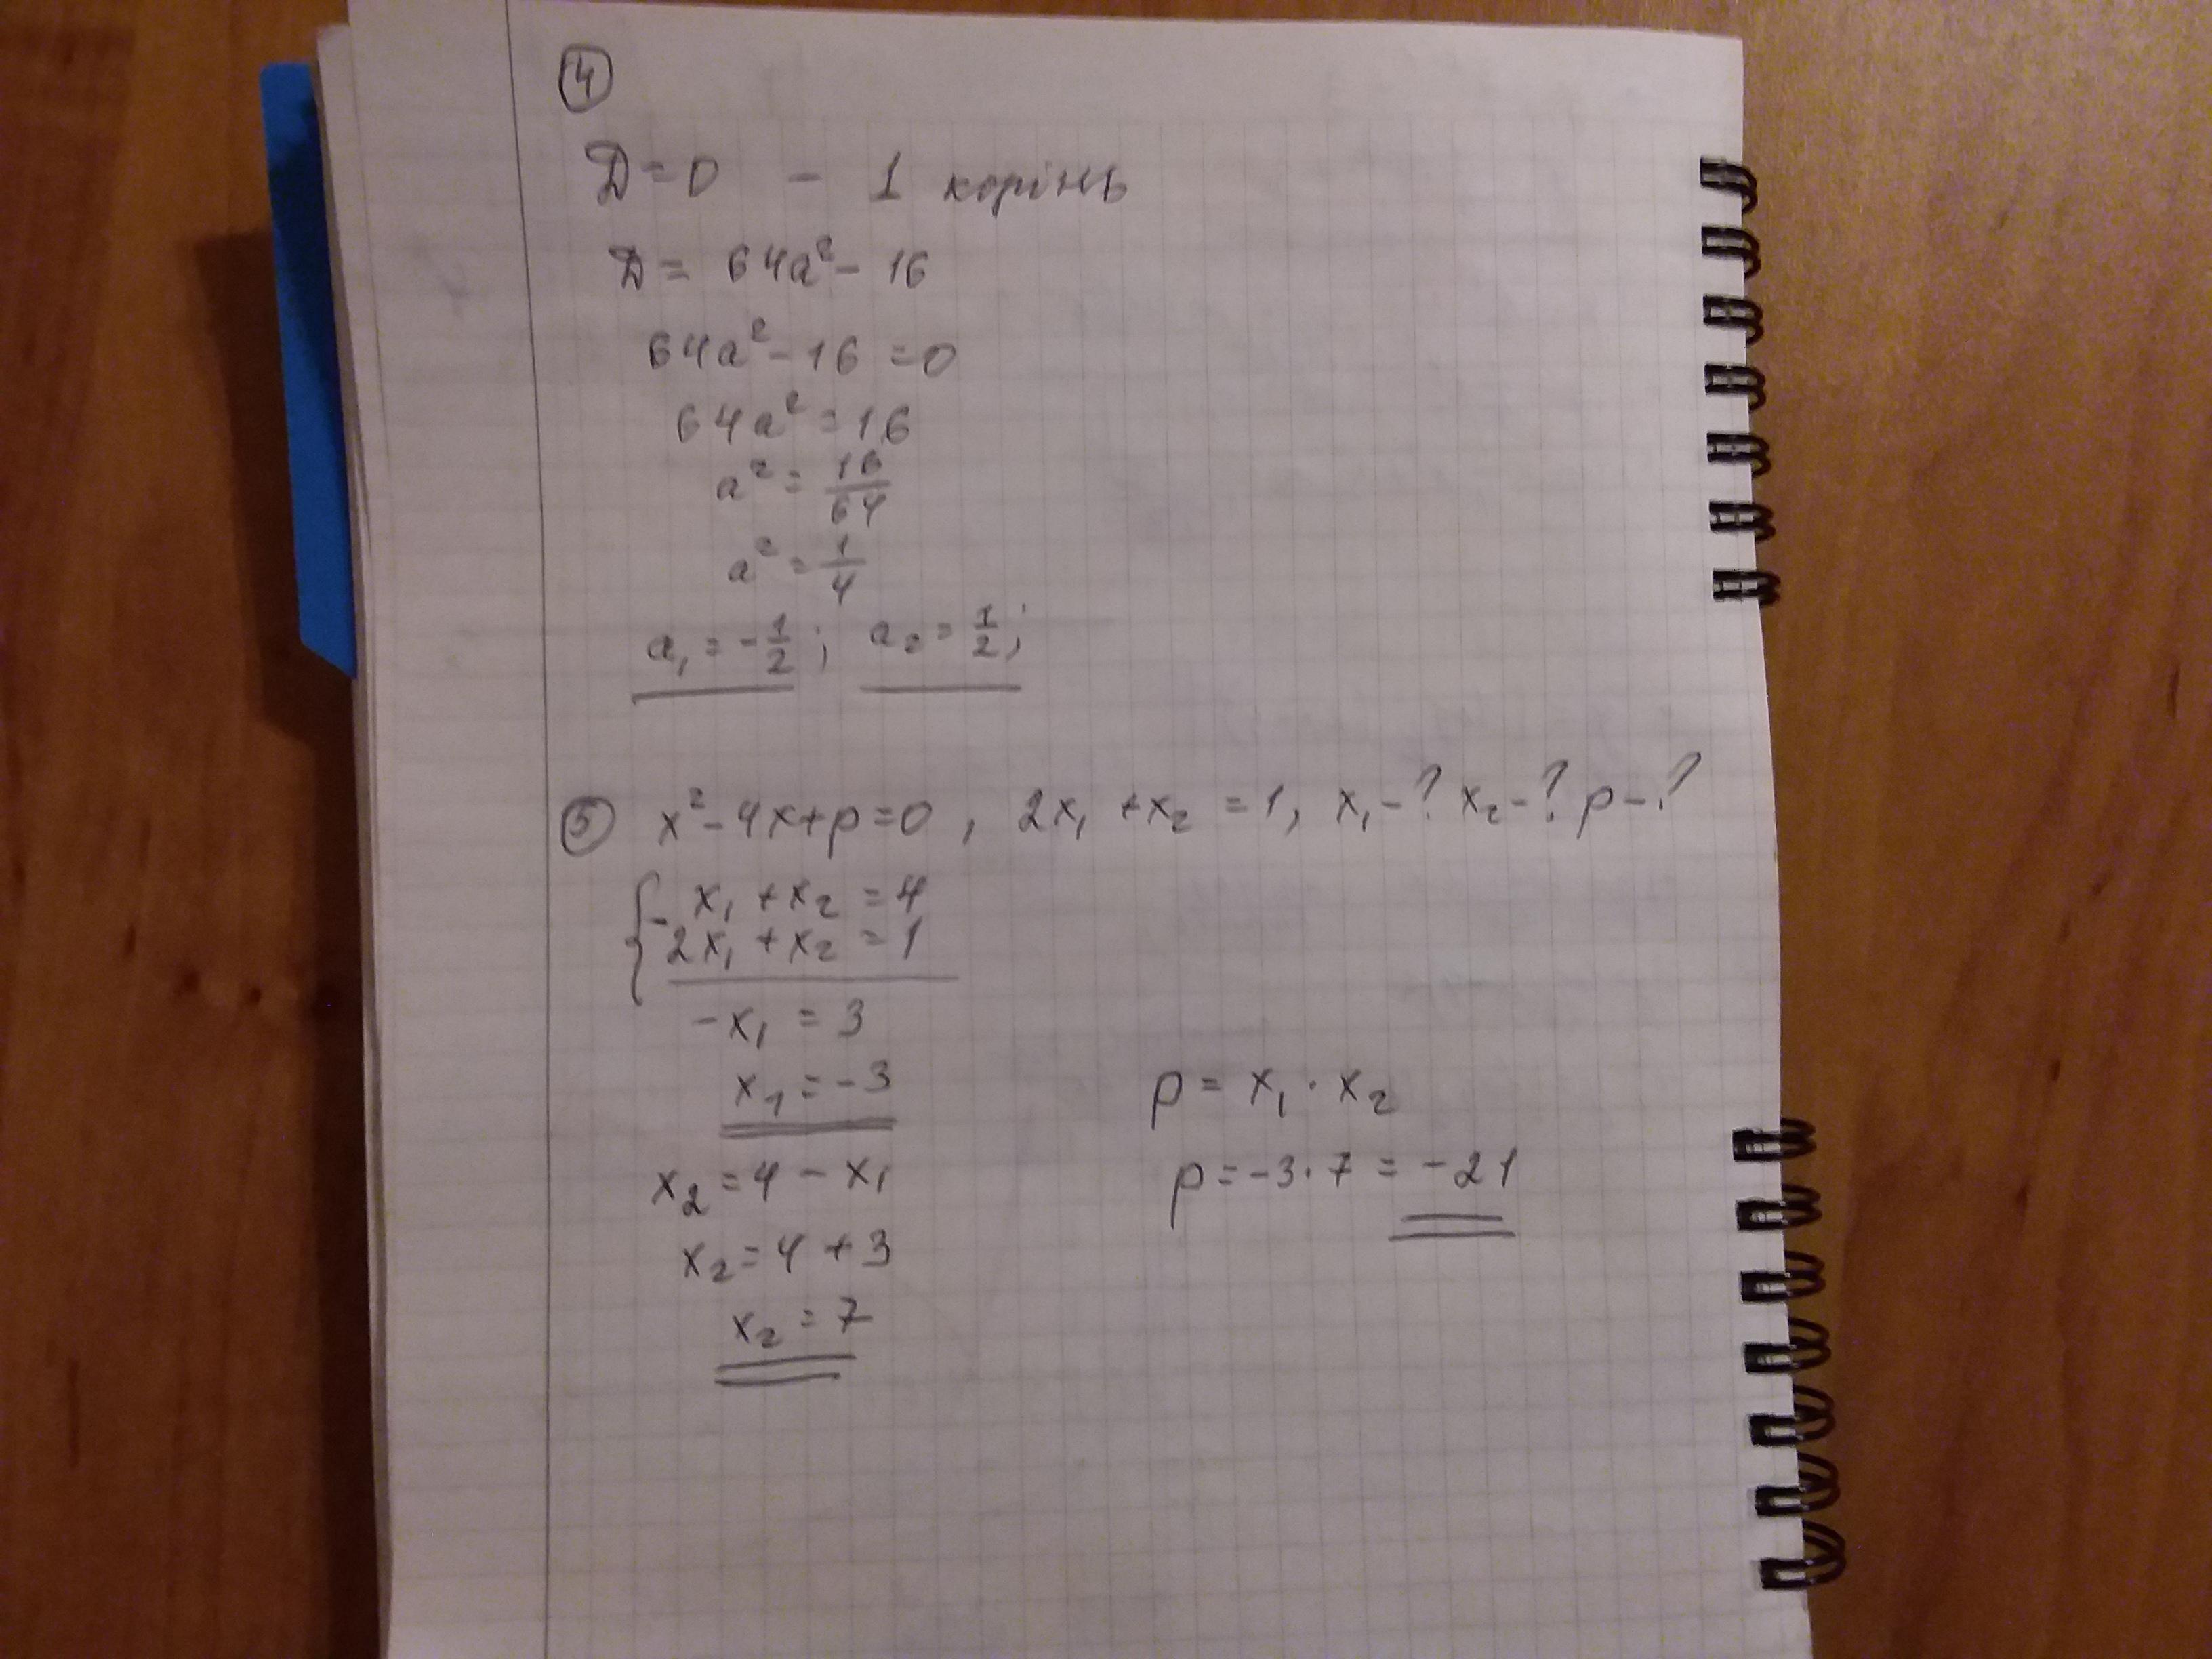 4
D = 0 - 1 корінь
D = 64a² - 16
64a² - 16 = 0
64a² = 16
a² = 16/64
a² = 1/4
a₁ = -1/2; a₂ = 1/2;
5 x² - 4x + p = 0, 2x₁ + x₂ = 1, x₁ - ? x₂ - ? p - ?
{ - x₁ + x₂ = 4
2x₁ + x₂ = 1
-x₁ = 3
x₁ = -3
x₂ = 4 - x₁
x₂ = 4 + 3
x₂ = 7
p = x₁ · x₂
p = -3 · 7 = -21